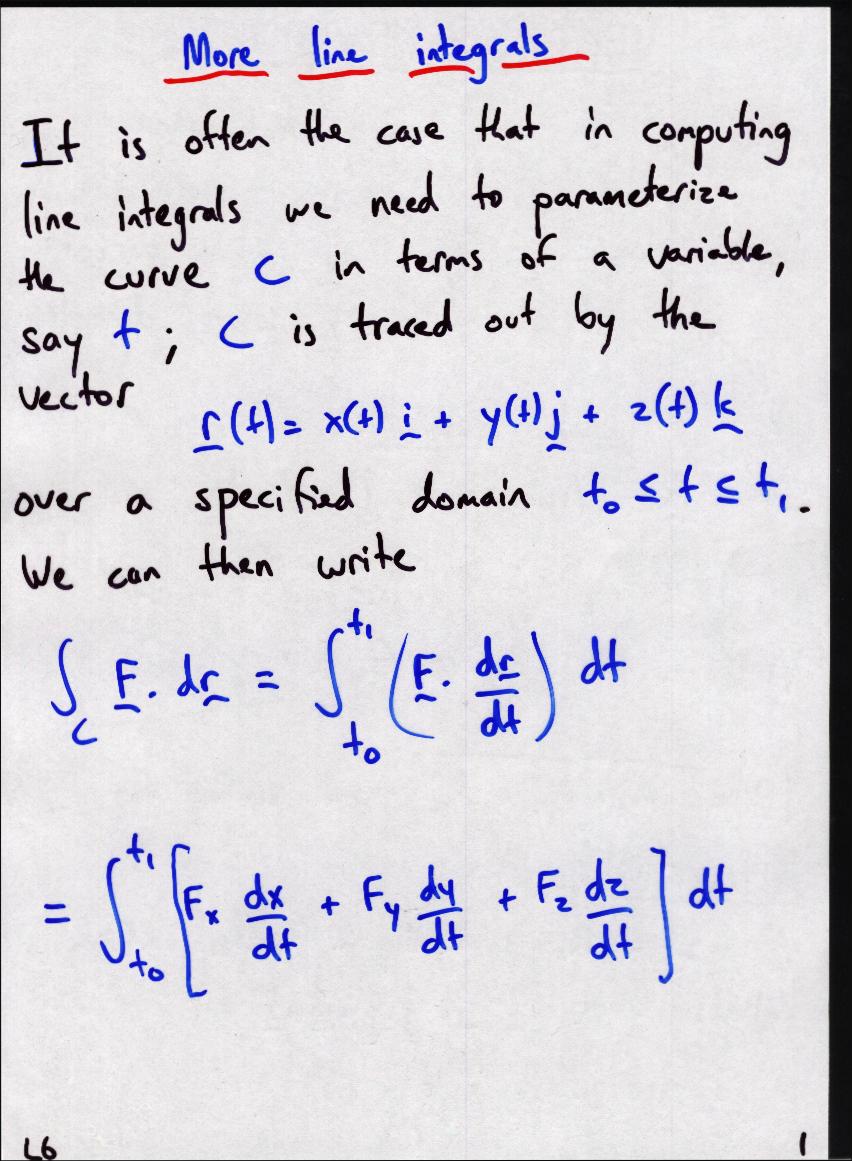 More line integrals
It is often the case that in computing
line integrals we need to parameterize
the curve C in terms of a variable,
say t; C is traced out by the
vector
r(t) = x(t) i + y(t) j + z(t) k
over a specified domain t₀ ≤ t ≤ t₁.
We can then write
∫_C F . dr = ∫_{t₀}^{t₁} (F . dr/dt) dt
= ∫_{t₀}^{t₁} [F_x dx/dt + F_y dy/dt + F_z dz/dt] dt
L6 1